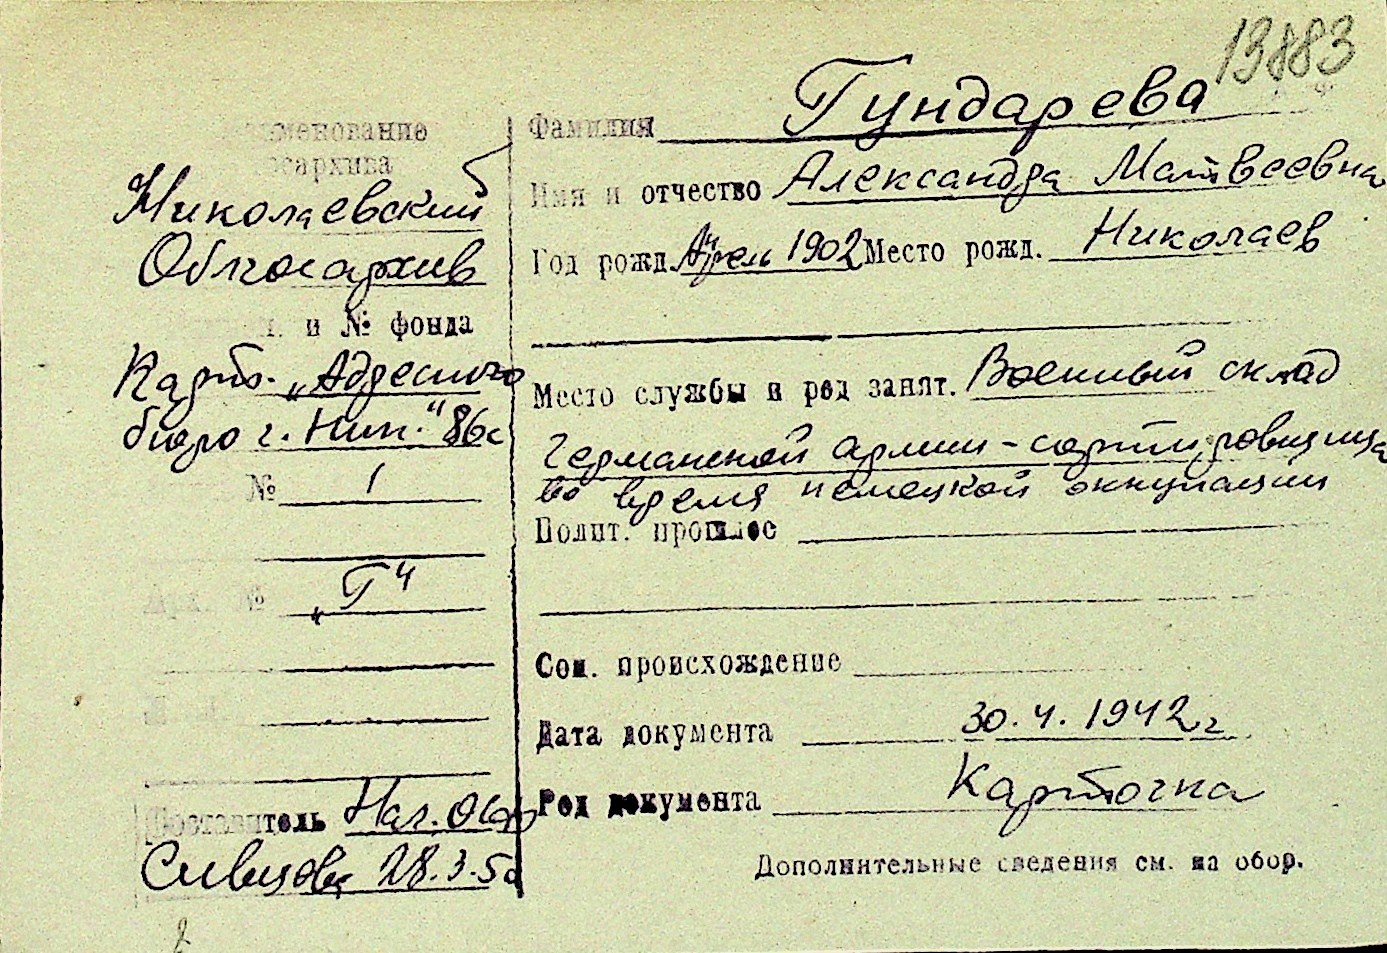 13883
Наименование
госархива
Николаевский
Облгосархив
и № фонда
Карт. „Адресного
бюро г. Ник." 86с
№ 1
Арх. № „Г"
Составитель Нач. Отд
28.3.5
Фамилия Гундарева
Имя и отчество Александра Матвеевна
Год рожд. Апрель 4 1902 Место рожд. Николаев
Место службы и род занят. Военный склад
Германской армии - сортировщица
во время немецкой оккупации
Полит. прошлое
Соц. происхождение
Дата документа 30.4.1942 г
Род документа Карточка
Дополнительные сведения см. на обор.